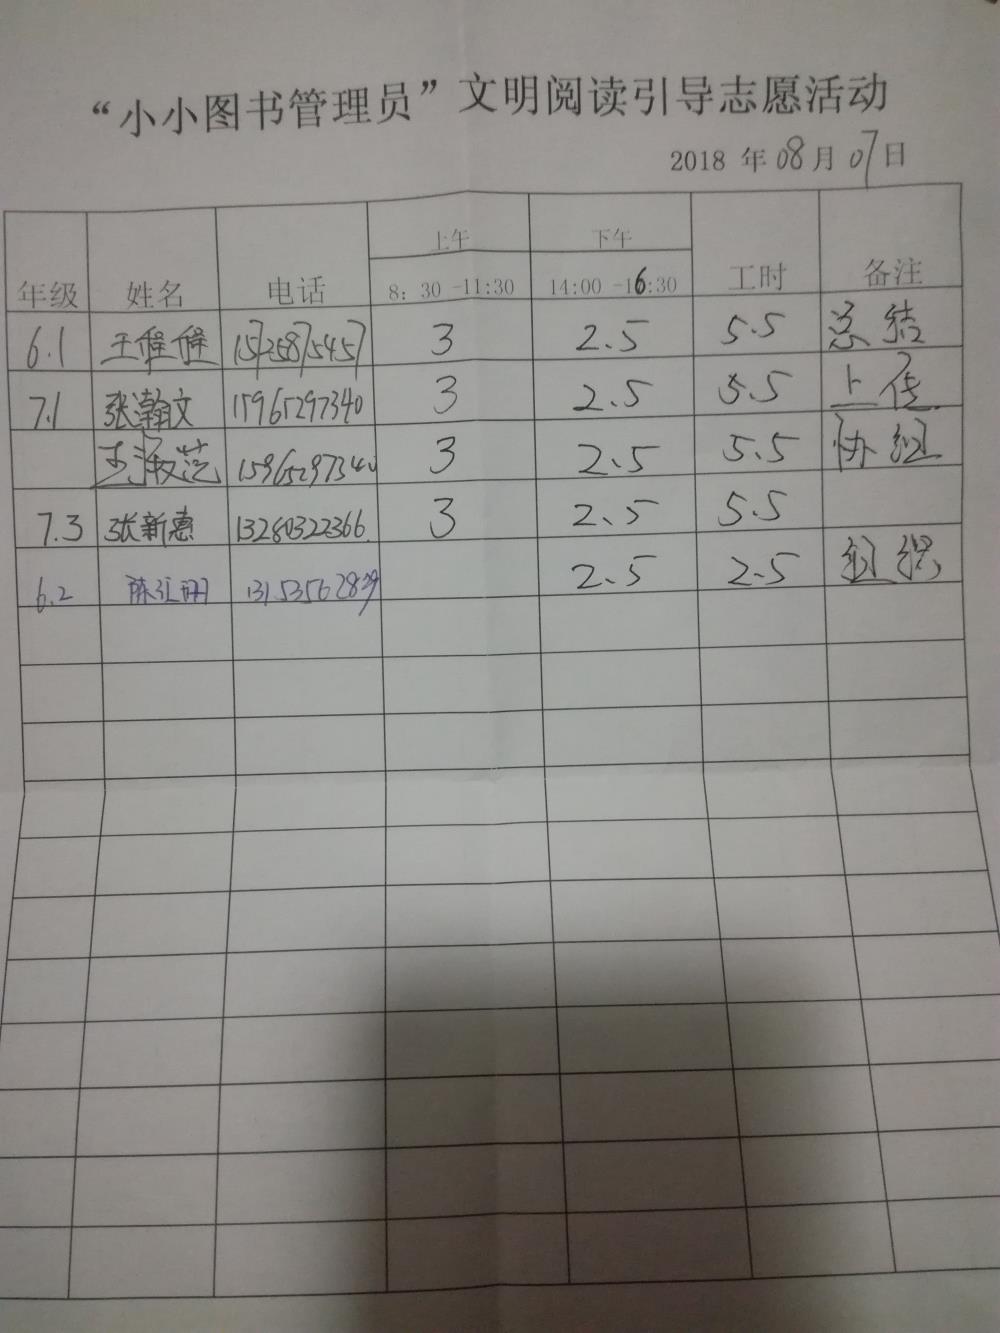 “小小图书管理员”文明阅读引导志愿活动
2018 年 08 月 07 日
年级 姓名 电话 上午 下午 工时 备注
8：30 -11:30 14:00 -16:30
6.1 王倕倕 15725875457 3 2.5 5.5 总结
7.1 张瀚文 15965297340 3 2.5 5.5 上传
王淑范 15965297340 3 2.5 5.5 协组
7.3 张新惠 13280322366 3 2.5 5.5
6.2 2.5 2.5 组织